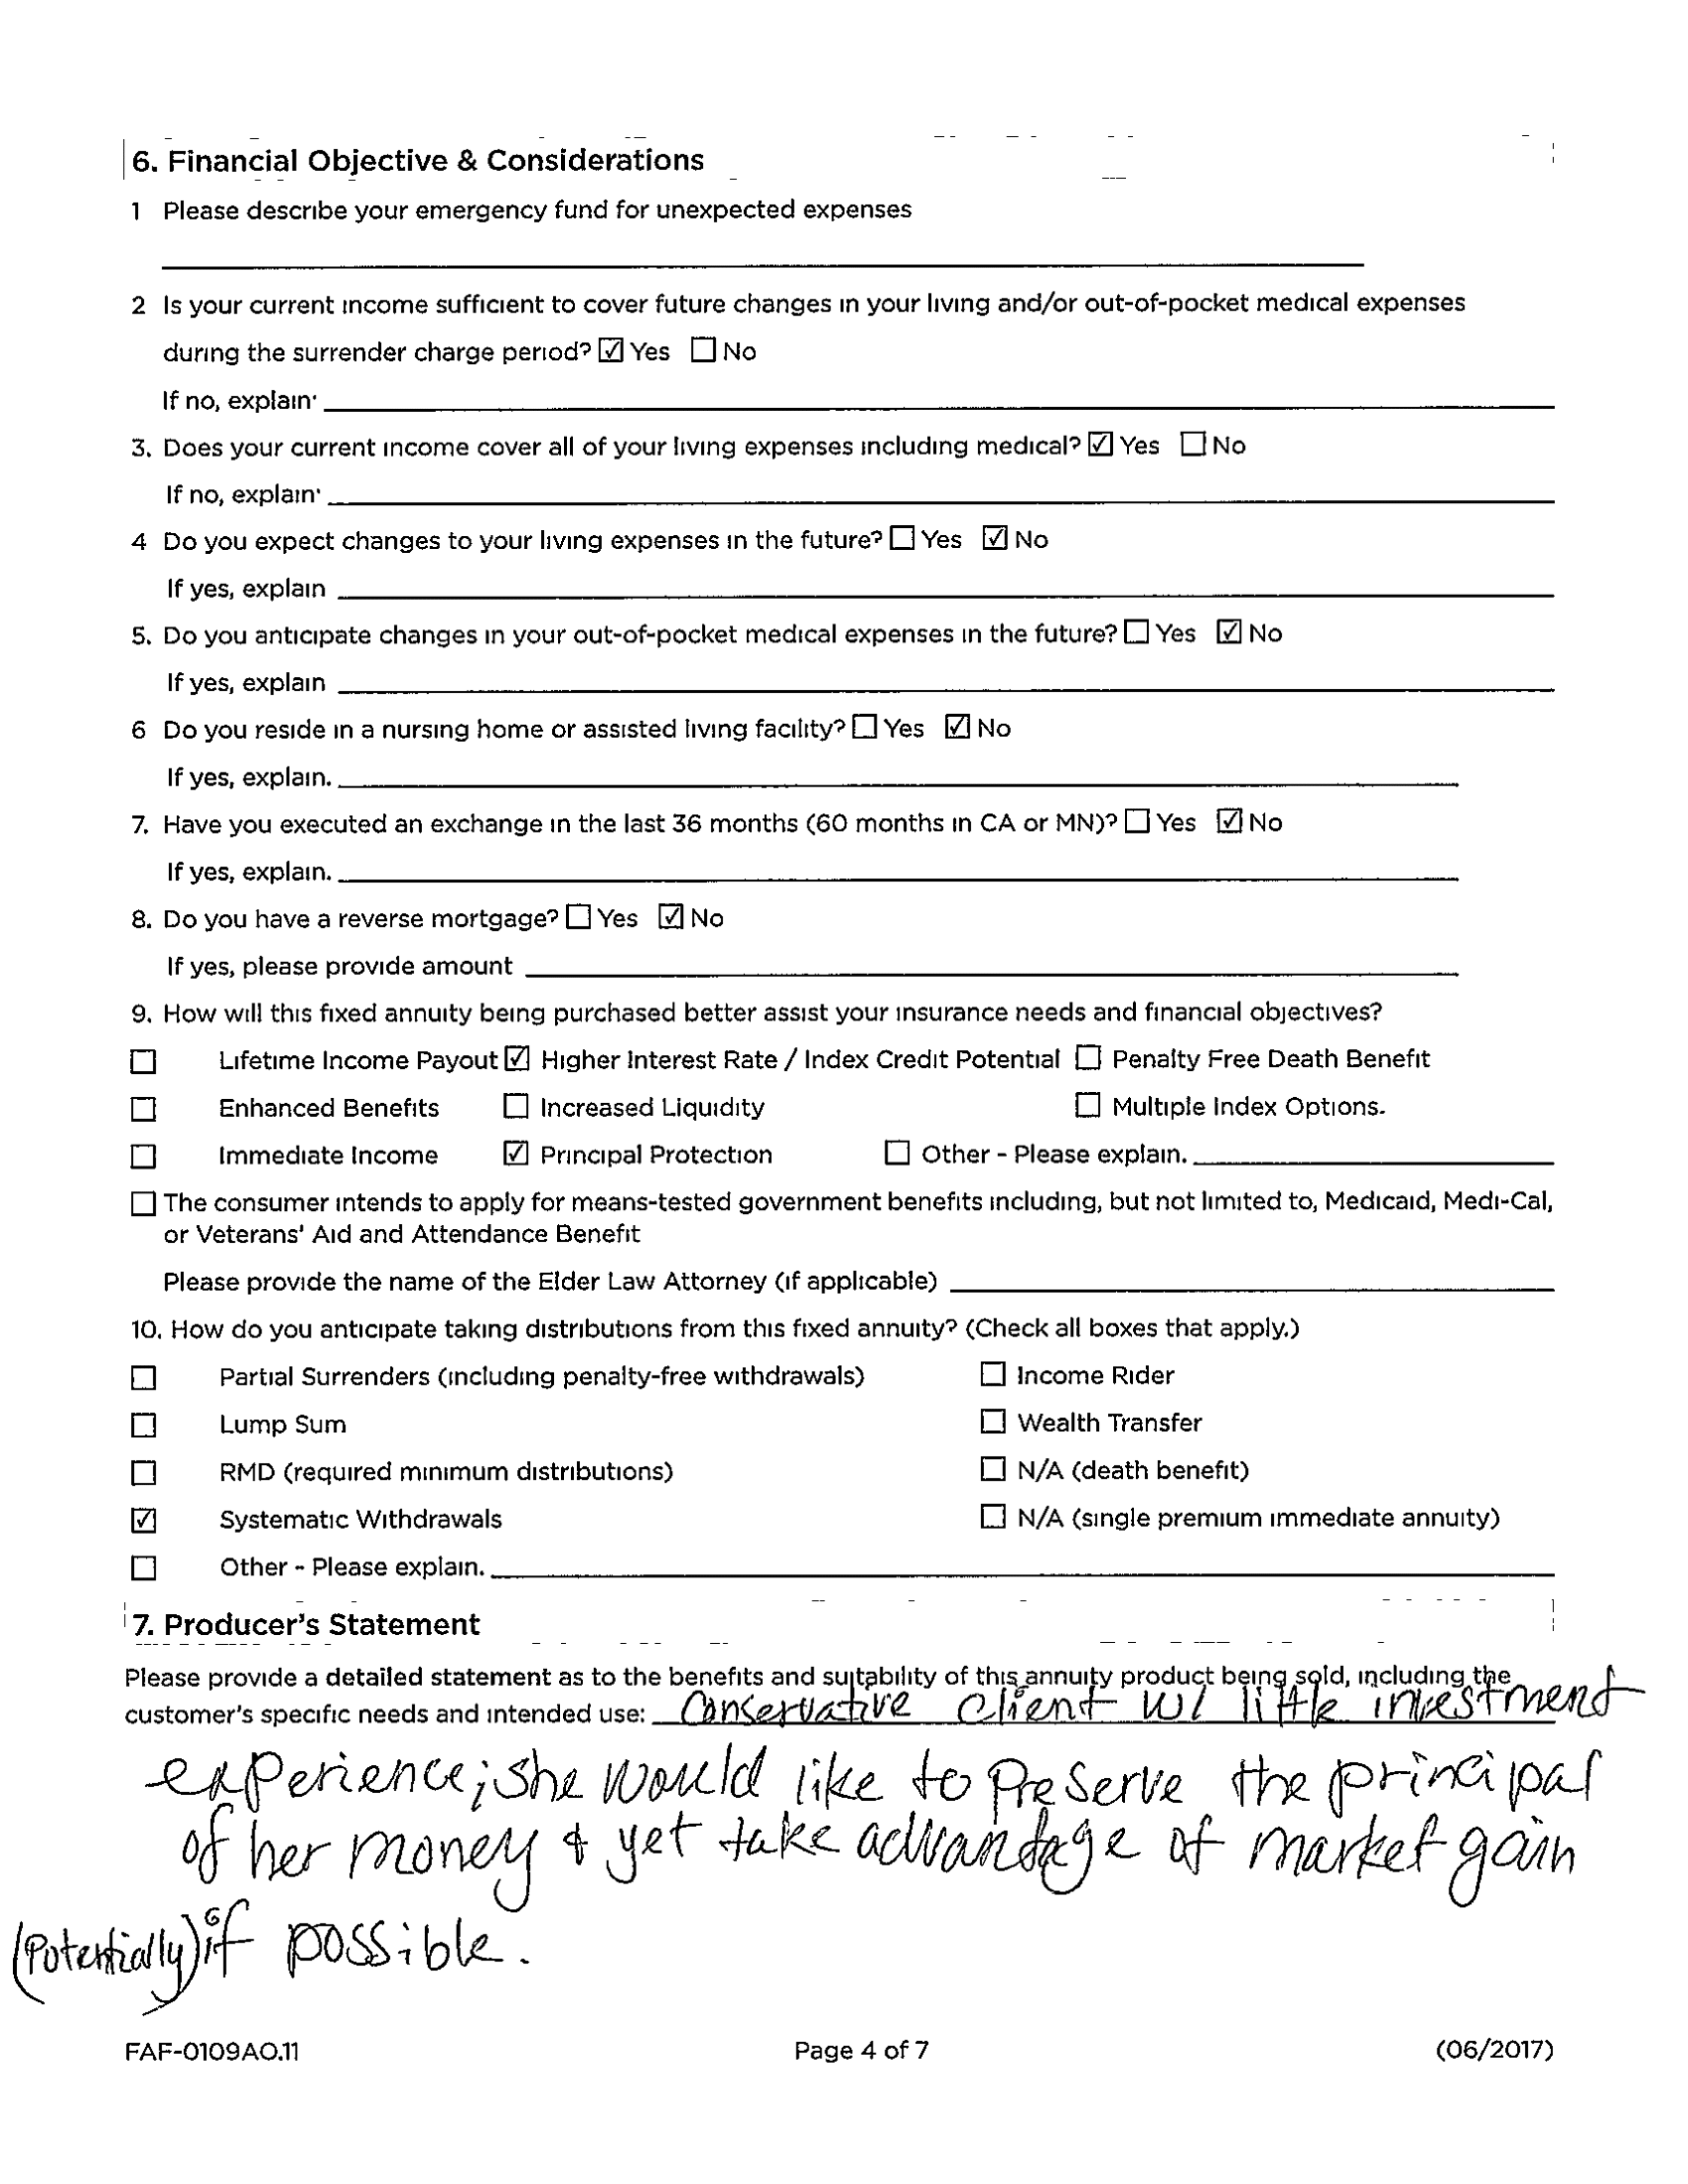 6. Financial Objective & Considerations
1 Please describe your emergency fund for unexpected expenses
2 Is your current income sufficient to cover future changes in your living and/or out-of-pocket medical expenses
during the surrender charge period? ☑ Yes ☐ No
If no, explain:
3. Does your current income cover all of your living expenses including medical? ☑ Yes ☐ No
If no, explain:
4 Do you expect changes to your living expenses in the future? ☐ Yes ☑ No
If yes, explain
5. Do you anticipate changes in your out-of-pocket medical expenses in the future? ☐ Yes ☑ No
If yes, explain
6 Do you reside in a nursing home or assisted living facility? ☐ Yes ☑ No
If yes, explain.
7. Have you executed an exchange in the last 36 months (60 months in CA or MN)? ☐ Yes ☑ No
If yes, explain.
8. Do you have a reverse mortgage? ☐ Yes ☑ No
If yes, please provide amount
9. How will this fixed annuity being purchased better assist your insurance needs and financial objectives?
☐ Lifetime Income Payout ☑ Higher Interest Rate / Index Credit Potential ☐ Penalty Free Death Benefit
☐ Enhanced Benefits ☐ Increased Liquidity ☐ Multiple Index Options.
☐ Immediate Income ☑ Principal Protection ☐ Other - Please explain.
☐ The consumer intends to apply for means-tested government benefits including, but not limited to, Medicaid, Medi-Cal,
or Veterans' Aid and Attendance Benefit
Please provide the name of the Elder Law Attorney (if applicable)
10. How do you anticipate taking distributions from this fixed annuity? (Check all boxes that apply.)
☐ Partial Surrenders (including penalty-free withdrawals) ☐ Income Rider
☐ Lump Sum ☐ Wealth Transfer
☐ RMD (required minimum distributions) ☐ N/A (death benefit)
☑ Systematic Withdrawals ☐ N/A (single premium immediate annuity)
☐ Other - Please explain.
7. Producer's Statement
Please provide a detailed statement as to the benefits and suitability of this annuity product being sold, including the
customer's specific needs and intended use: Conservative client w/ little investment
experience; she would like to preserve the principal
of her money & yet take advantage of market gain
(Potentially) if possible.
FAF-0109AO.11 Page 4 of 7 (06/2017)